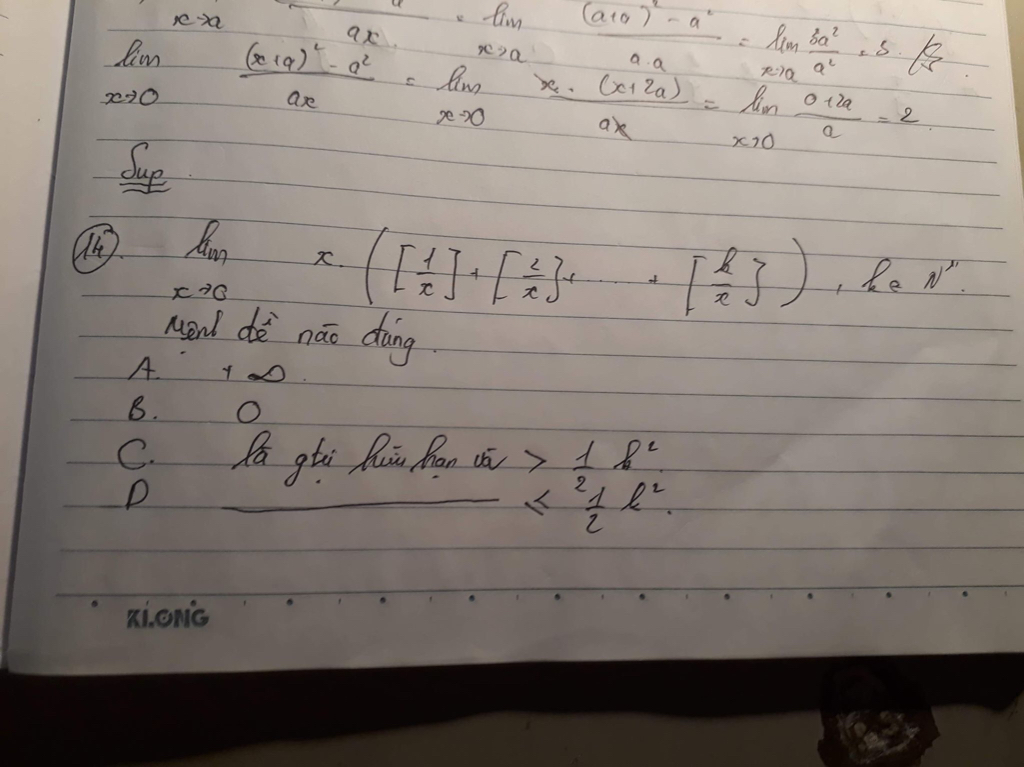 lim x→a ax = lim x→a (a+a)² - a² / a.a = lim x→a 3a² / a² = 3.
lim x→0 (x+a)² - a² / ax = lim x→0 x.(x+2a) / ax = lim x→0 0+2a / a = 2
Sup
14. lim x→0 x.([1/x] + [2/x] + ...... + [k/x]), k ∈ N*.
Mệnh đề nào đúng.
A. +∞.
B. O
C. là gtrị hữu hạn và > 1/2 k².
D ________ ≤ 1/2 k².
KLONG